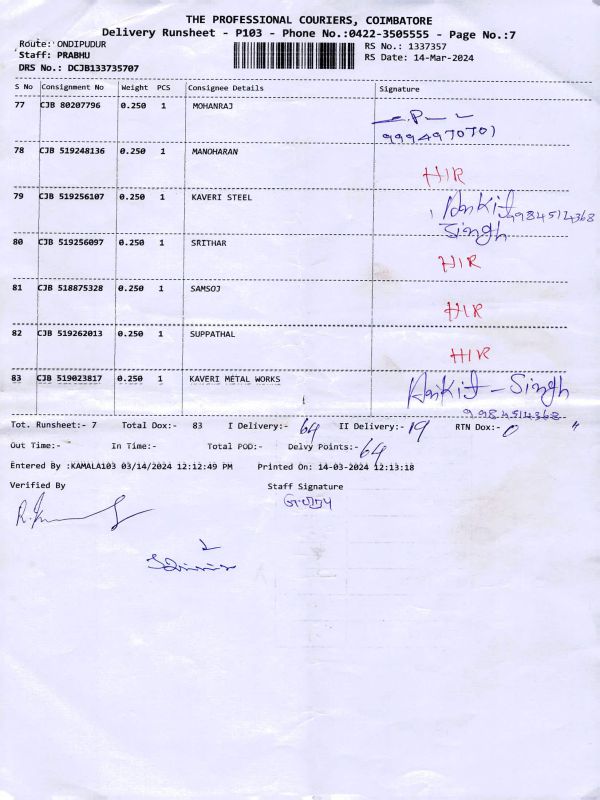 THE PROFESSIONAL COURIERS, COIMBATORE
Delivery Runsheet - P103 - Phone No.:0422-3505555 - Page No.:7
Route: ONDIPUDUR
RS No.: 1337357
Staff: PRABHU
RS Date: 14-Mar-2024
DRS No.: DCJB133735707
S No Consignment No Weight PCS Consignee Details Signature
77 CJB 80207796 0.250 1 MOHANRAJ
9994970701
78 CJB 519248136 0.250 1 MANOHARAN HIR
79 CJB 519256107 0.250 1 KAVERI STEEL Ankit 9984514368
Singh
80 CJB 519256097 0.250 1 SRITHAR HIR
81 CJB 518875328 0.250 1 SAMSOJ HIR
82 CJB 519262013 0.250 1 SUPPATHAL HIR
83 CJB 519023817 0.250 1 KAVERI METAL WORKS Ankit - Singh
9984514368
Tot. Runsheet:- 7 Total Dox:- 83 I Delivery:- 64 II Delivery:- 19 RTN Dox:- 0 "
Out Time:- In Time:- Total POD:- Delvy Points:- 64
Entered By :KAMALA103 03/14/2024 12:12:49 PM Printed On: 14-03-2024 12:13:18
Verified By Staff Signature